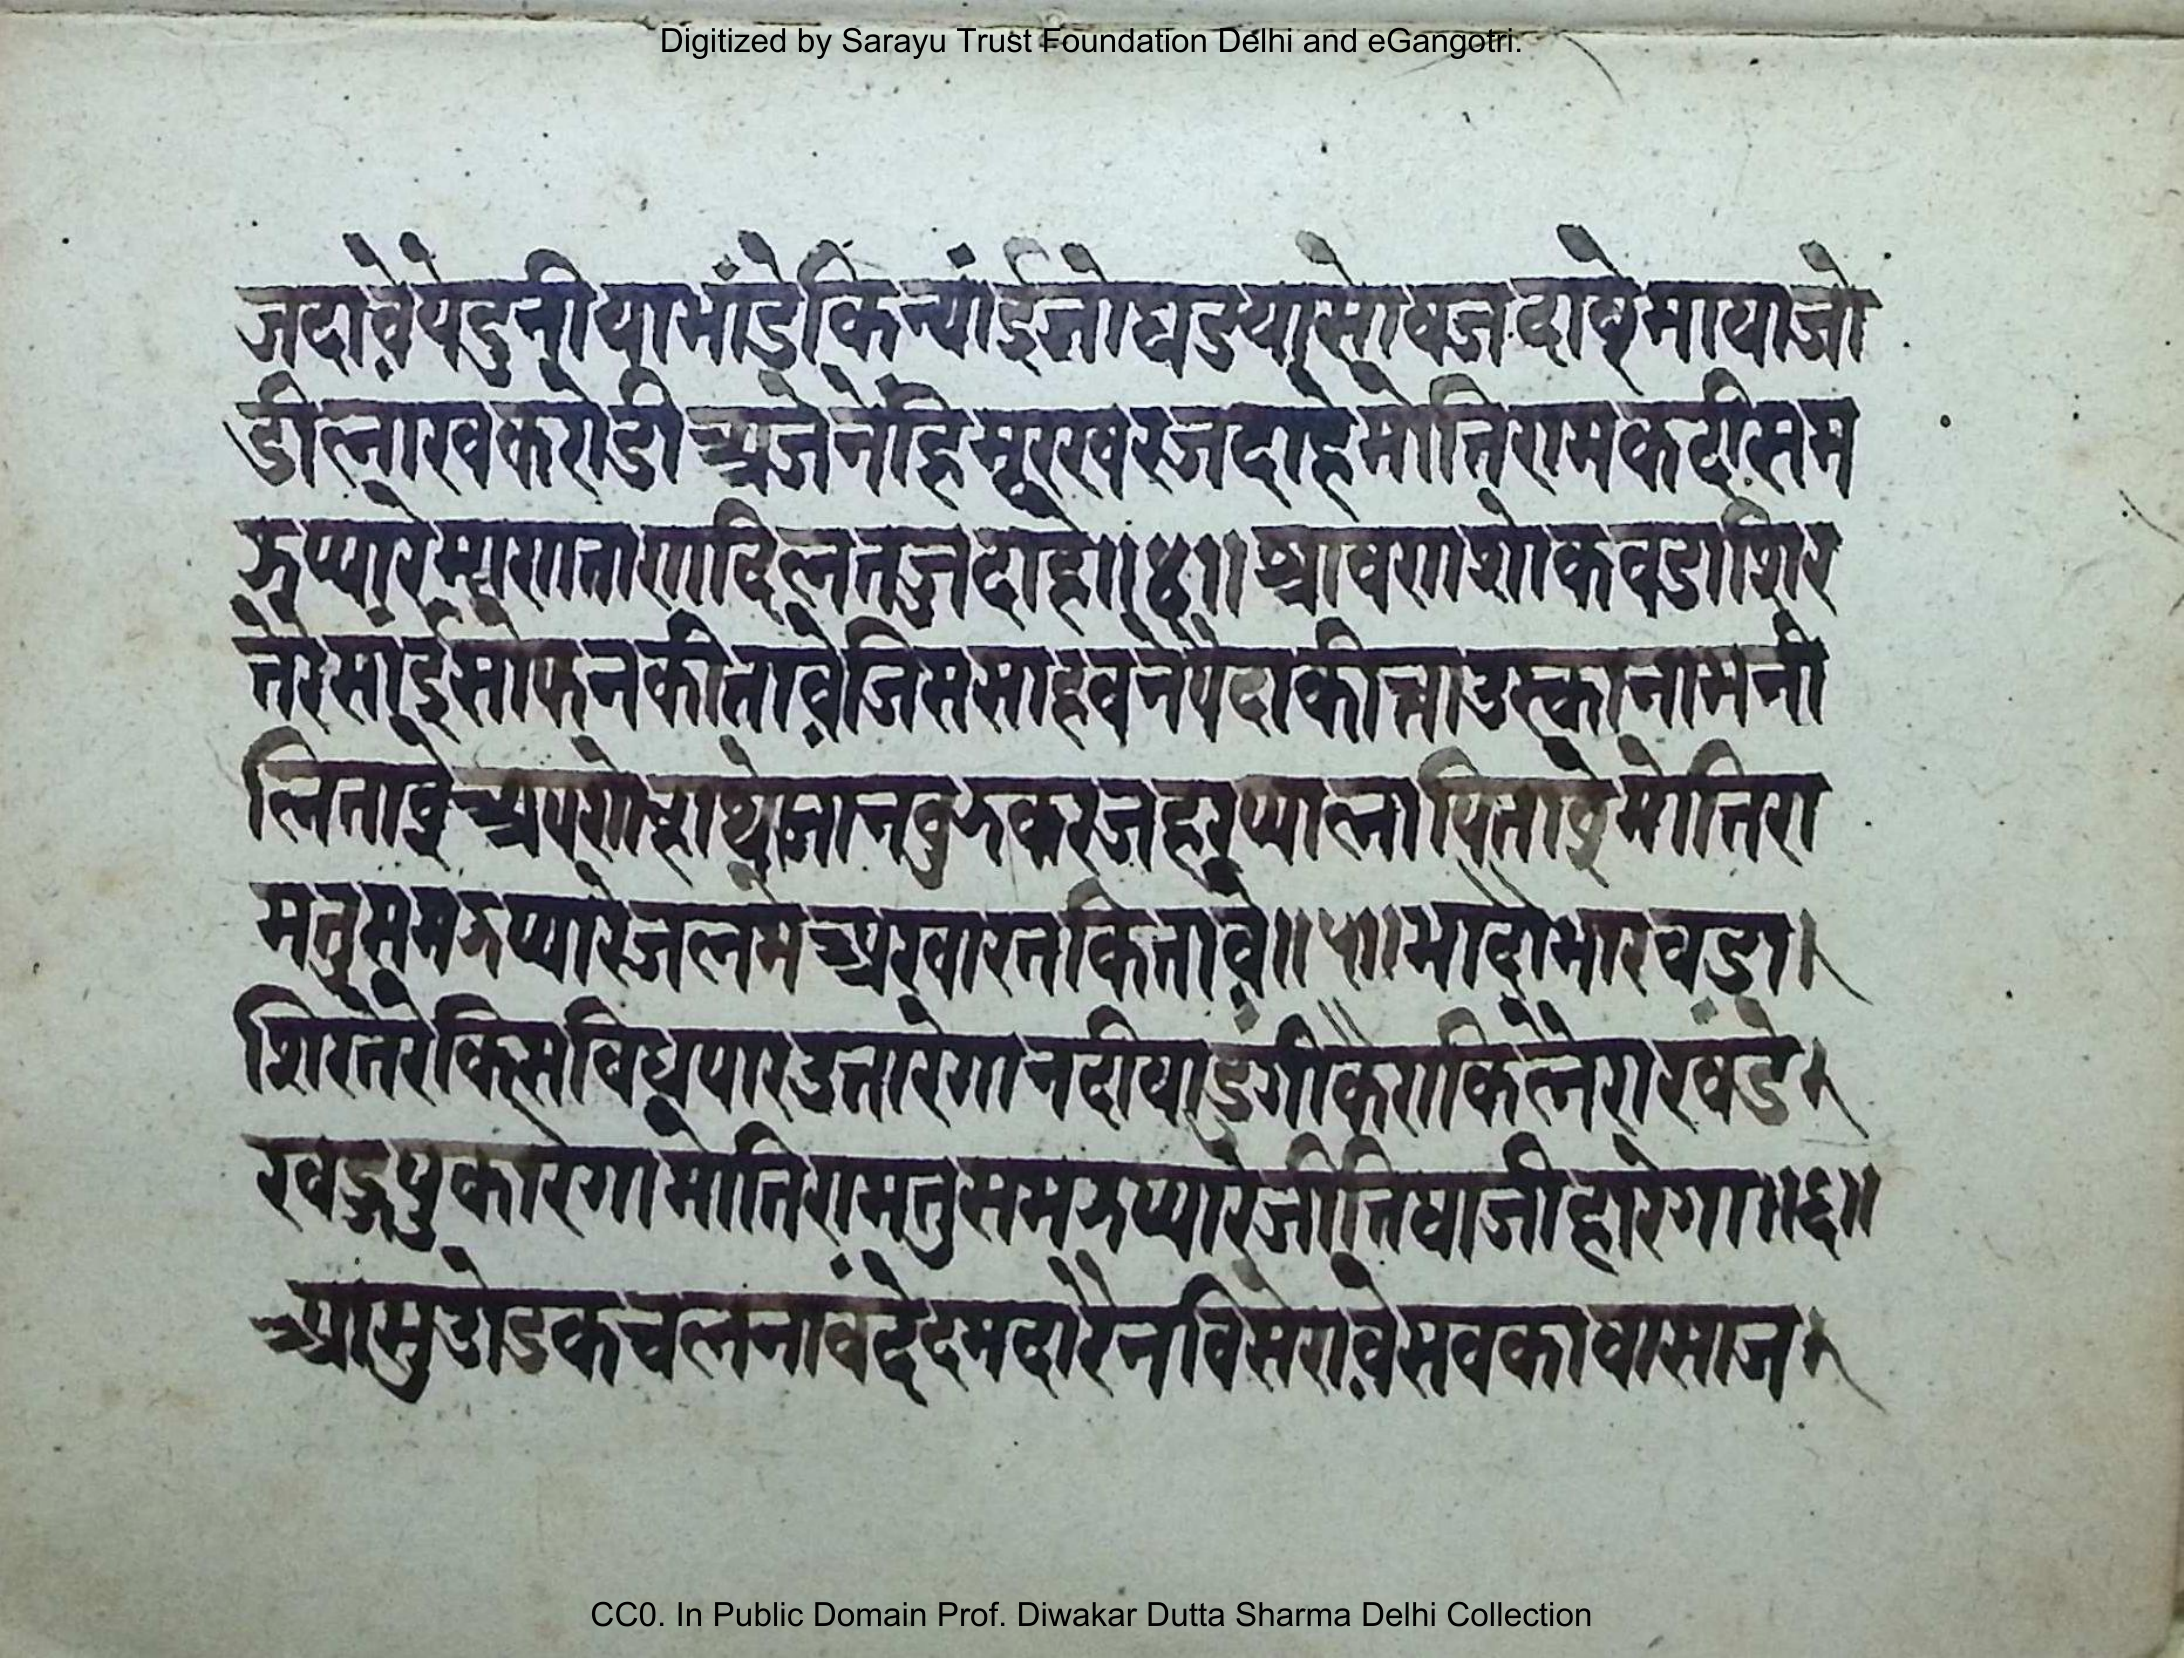 Digitized by Sarayu Trust Foundation Delhi and eGangotri.
जदावेयेदुनीयाभांडेकिन्यांईजोघडयासोवजदावेमायाजो
डीलाखकरोडीअजेनेहिमूरखरजदाहेमोतिरामकदीसम
झप्यारे दिलतजदाहे॥४॥श्रावणशोकवडाशिर
तेरेसांईसोफनकीतावेजिससाहवनेपैदाकीनाउस्कानामनी
लितावे जानवुझकरजहरप्यालापितावेमोतिरा
मतुसमझप्यारेजलमेअखारनकितावे॥५॥भादोभारवडा।
शिरतेरेकिसविधपारउतारेगानदीयाडुंगी खंडे
खडपुकारेगामोतिरामतुसमझप्यारेजीतिबाजीहारेगा॥६॥
आसुउोडकचलनावंदेदमदारैनविसेरावेसवकावासाज
CC0. In Public Domain Prof. Diwakar Dutta Sharma Delhi Collection